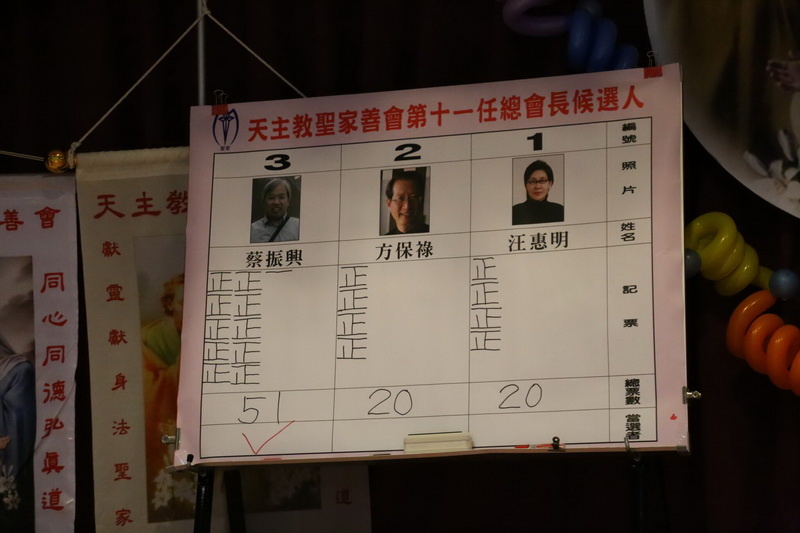 天主教聖家善會第十一任總會長候選人
聖家
3 2 1 編號
照片
蔡振興 方保祿 汪惠明 姓名
正正一 正 正 記票
正正 正 正
正正 正 正
正正 正 正
正正
51 20 20 總票數
當選者
善會
同心同德弘真道
天主教
獻靈獻身法聖家
道